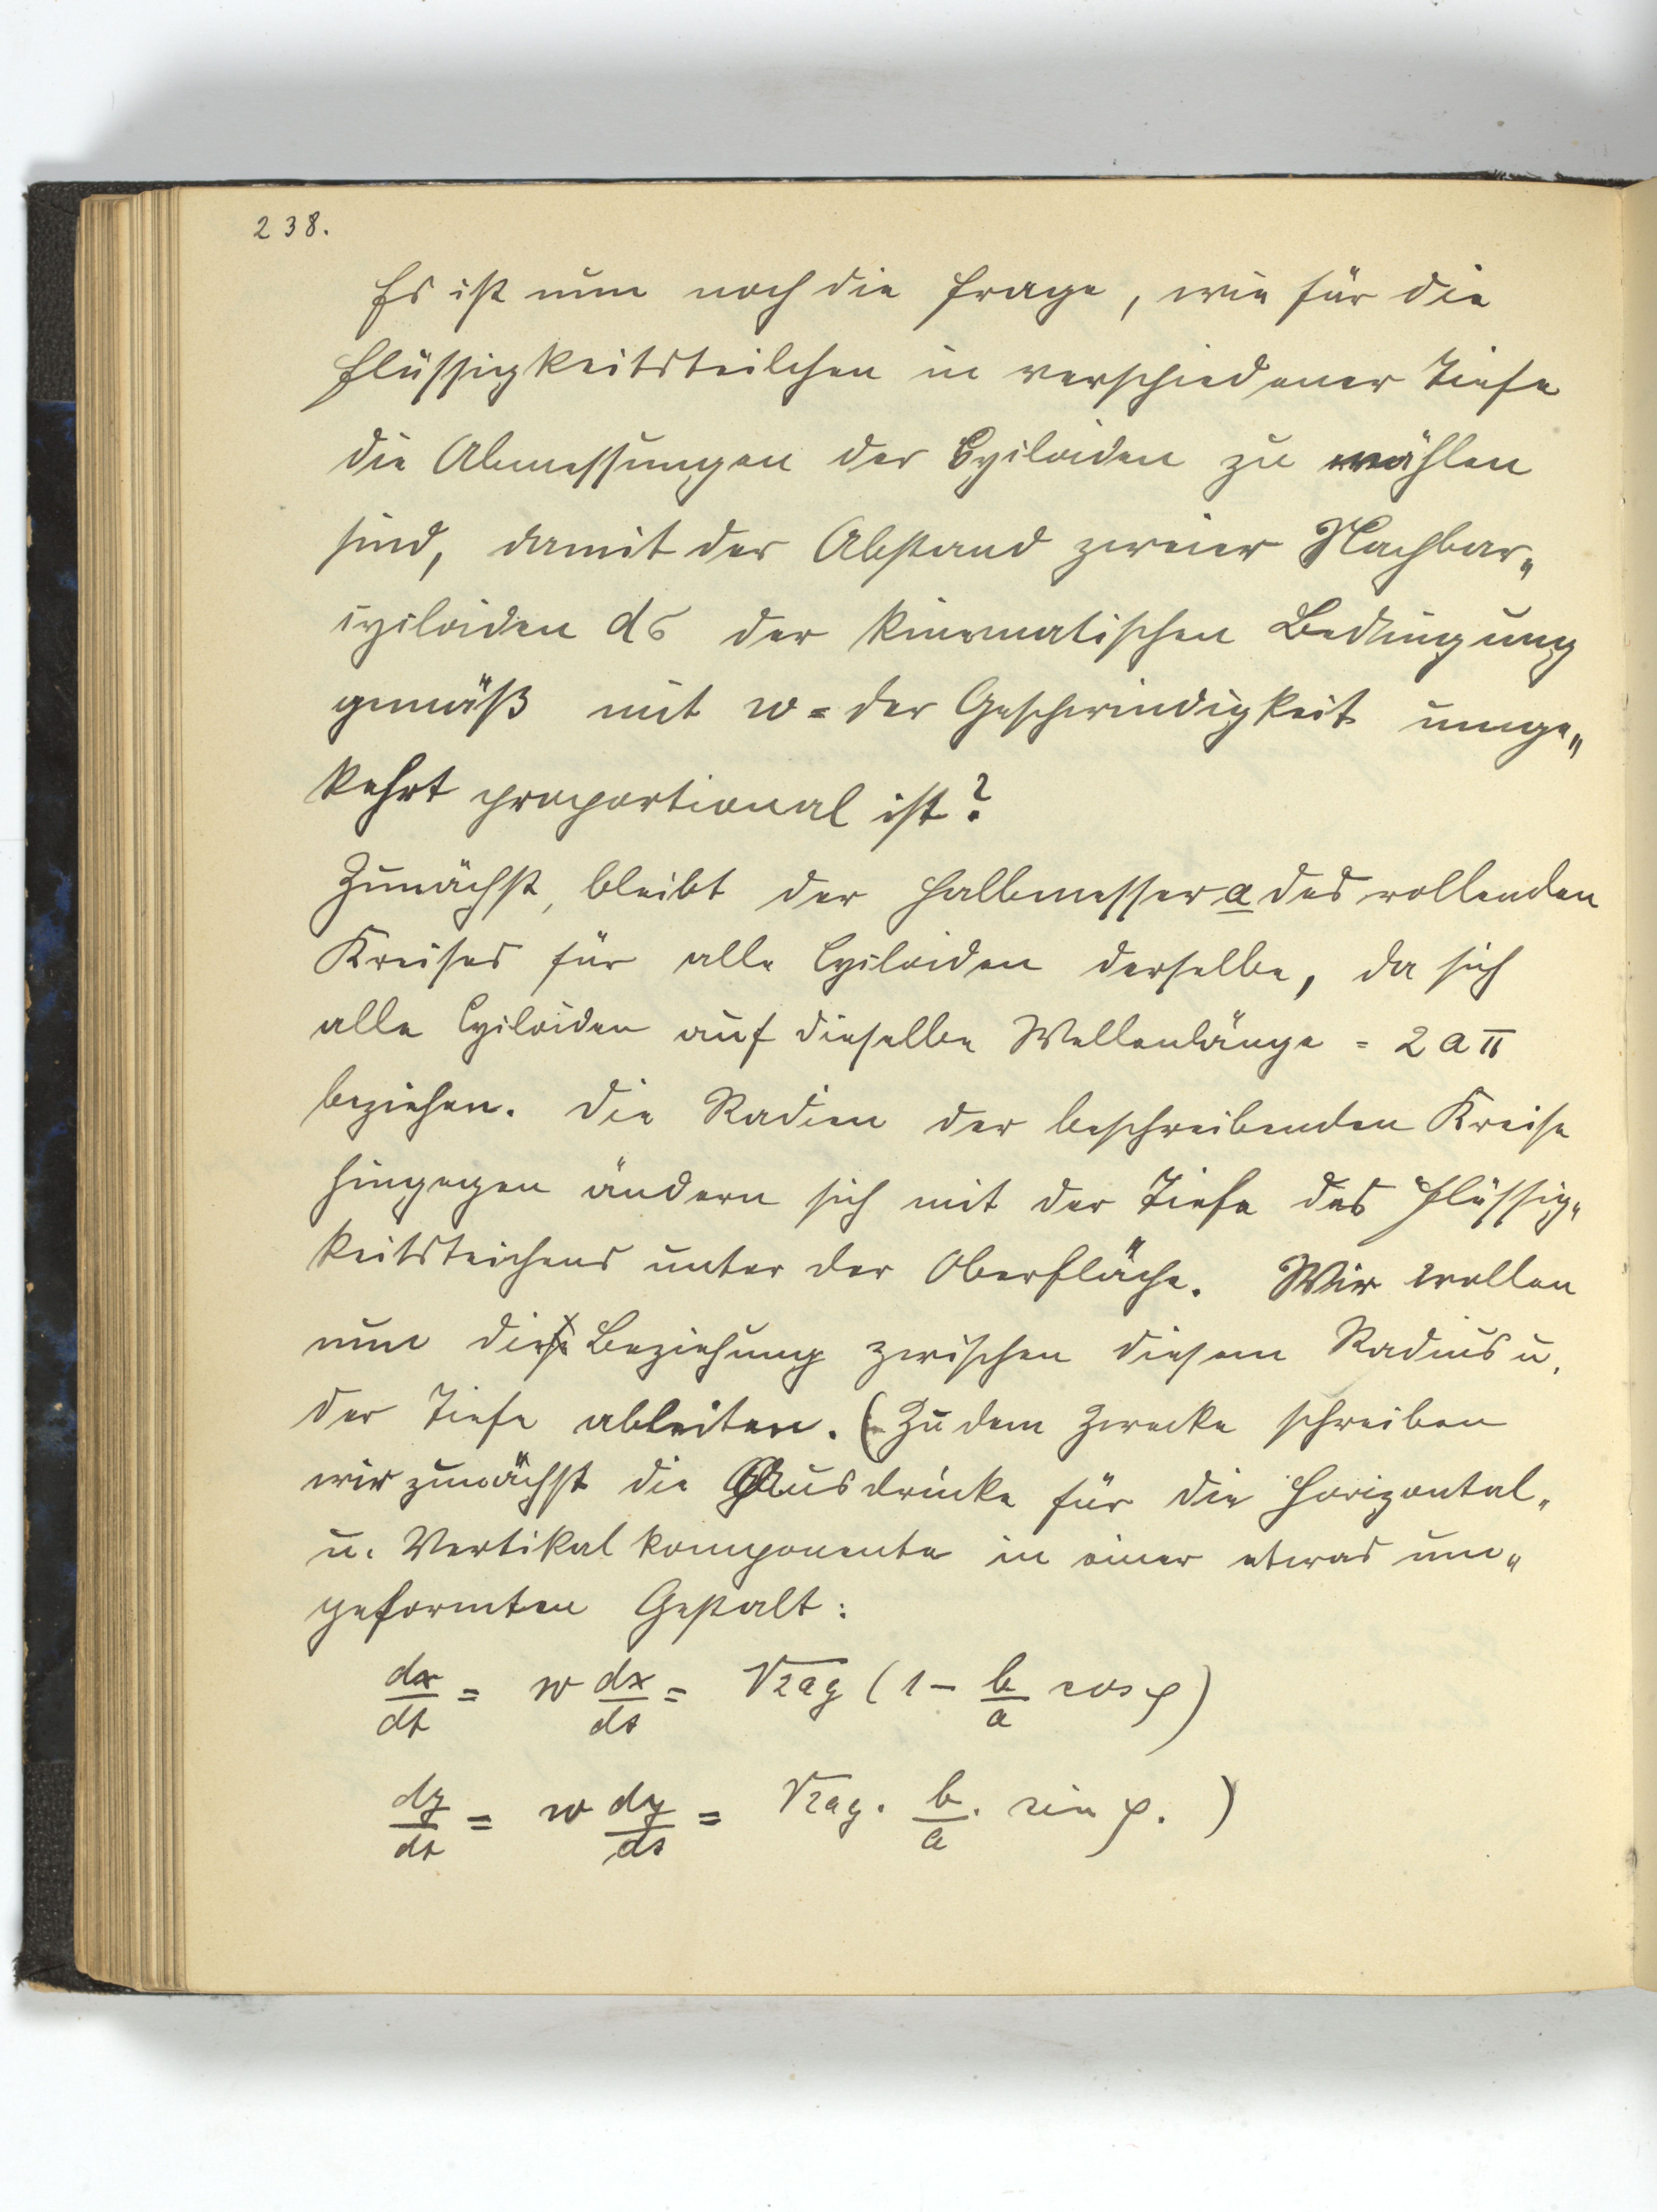 238.
Es ist nun noch die Frage, wie für die
Flüssigkeitsteilchen in verschiedener Tiefe
die Abmessungen der Cycloiden zu wählen
sind, damit der Abstand zweier Nachbar„
cycloiden dσ der kinematischen Bedingung
gemäß mit w = der Geschwindigkeit umge„
kehrt proportional ist?
Zunächst, bleibt der Halbmesser a des rollenden
Kreises für alle Cycloiden derselbe, da sich
alle Cycloiden auf dieselbe Wellenlänge = 2aπ
beziehen. Die Radien der beschreibenden Kreise
hingegen ändern sich mit der Tiefe des Flüssig„
keitsteichens unter der Oberfläche. Wir wollen
nun die Beziehung zwischen diesem Radius u.
der Tiefe ableiten. (Zu dem Zwecke schreiben
wir zunächst die Ausdrücke für die Horizontal„
u. Vertikalkomponente in einer etwas um„
geformten Gestalt:
dx/dt = w dx/ds = √2ag (1 - b/a cos φ)
dy/dt = w dy/ds = √2ag. b/a. sin φ. )